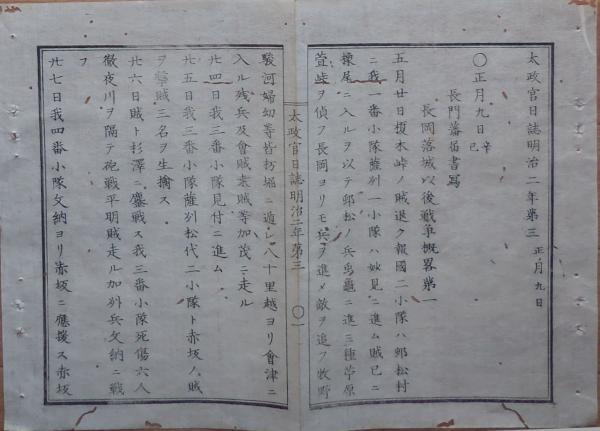 太政官日誌明治二年第三 正月九日
〇正月九日 辛巳
長門藩届書写
長岡落城以後戦争概畧第一
五月廿日榎木峠ノ賊退ク報國二小隊ハ郷松村
ニ我一番小隊薩州一小隊ハ妙見ニ進ム賊已ニ
棟尾ニ入ルヲ以テ郷松ノ兵亀ニ進三種芋原
萱峠ヲ偵フ長岡ヨリモ兵ヲ進メ敵ヲ追フ牧野
太政官日誌明治二年第三 〇一
駿河婦幼等皆枋堀ニ遁レ八十里越ヨリ會津ニ
入ル残兵及會賊素賊等加茂ニ走ル
廿四日我三番小隊見付ニ進ム
廿五日我三番小隊薩州松代二小隊ト赤坂ノ賊
ヲ撃賊三名ヲ生擒ス
廿六日賊ト杉澤ニ鏖戦ス我三番小隊死傷六人
徹夜川ヲ隔テ砲戦平明賊走ル加州兵文納ニ戦
フ
廿七日我四番小隊文納ヨリ赤坂ニ應援ス赤坂